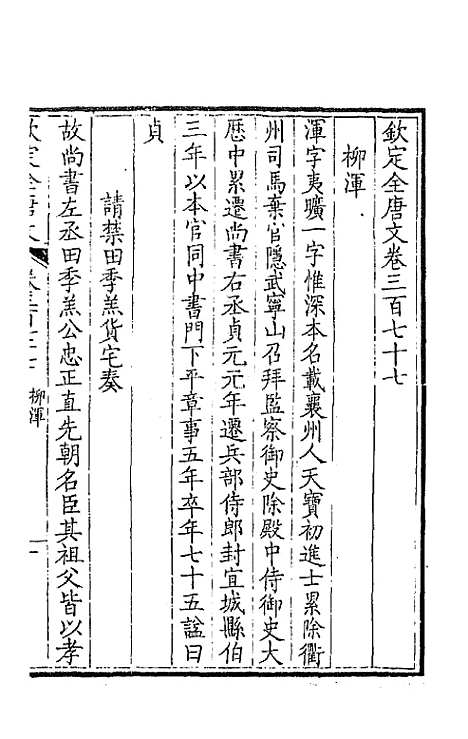 欽定全唐文卷三百七十七
柳渾
渾字夷曠一字惟深本名載襄州人天寶初進士累除衢
州司馬棄官隱武寧山召拜監察御史除殿中侍御史大
歷中累遷尚書右丞貞元元年遷兵部侍郎封宜城縣伯
三年以本官同中書門下平章事五年卒年七十五諡曰
貞
請禁田季羔貨宅奏
故尚書左丞田季羔公忠正直先朝名臣其祖父皆以孝
柳渾